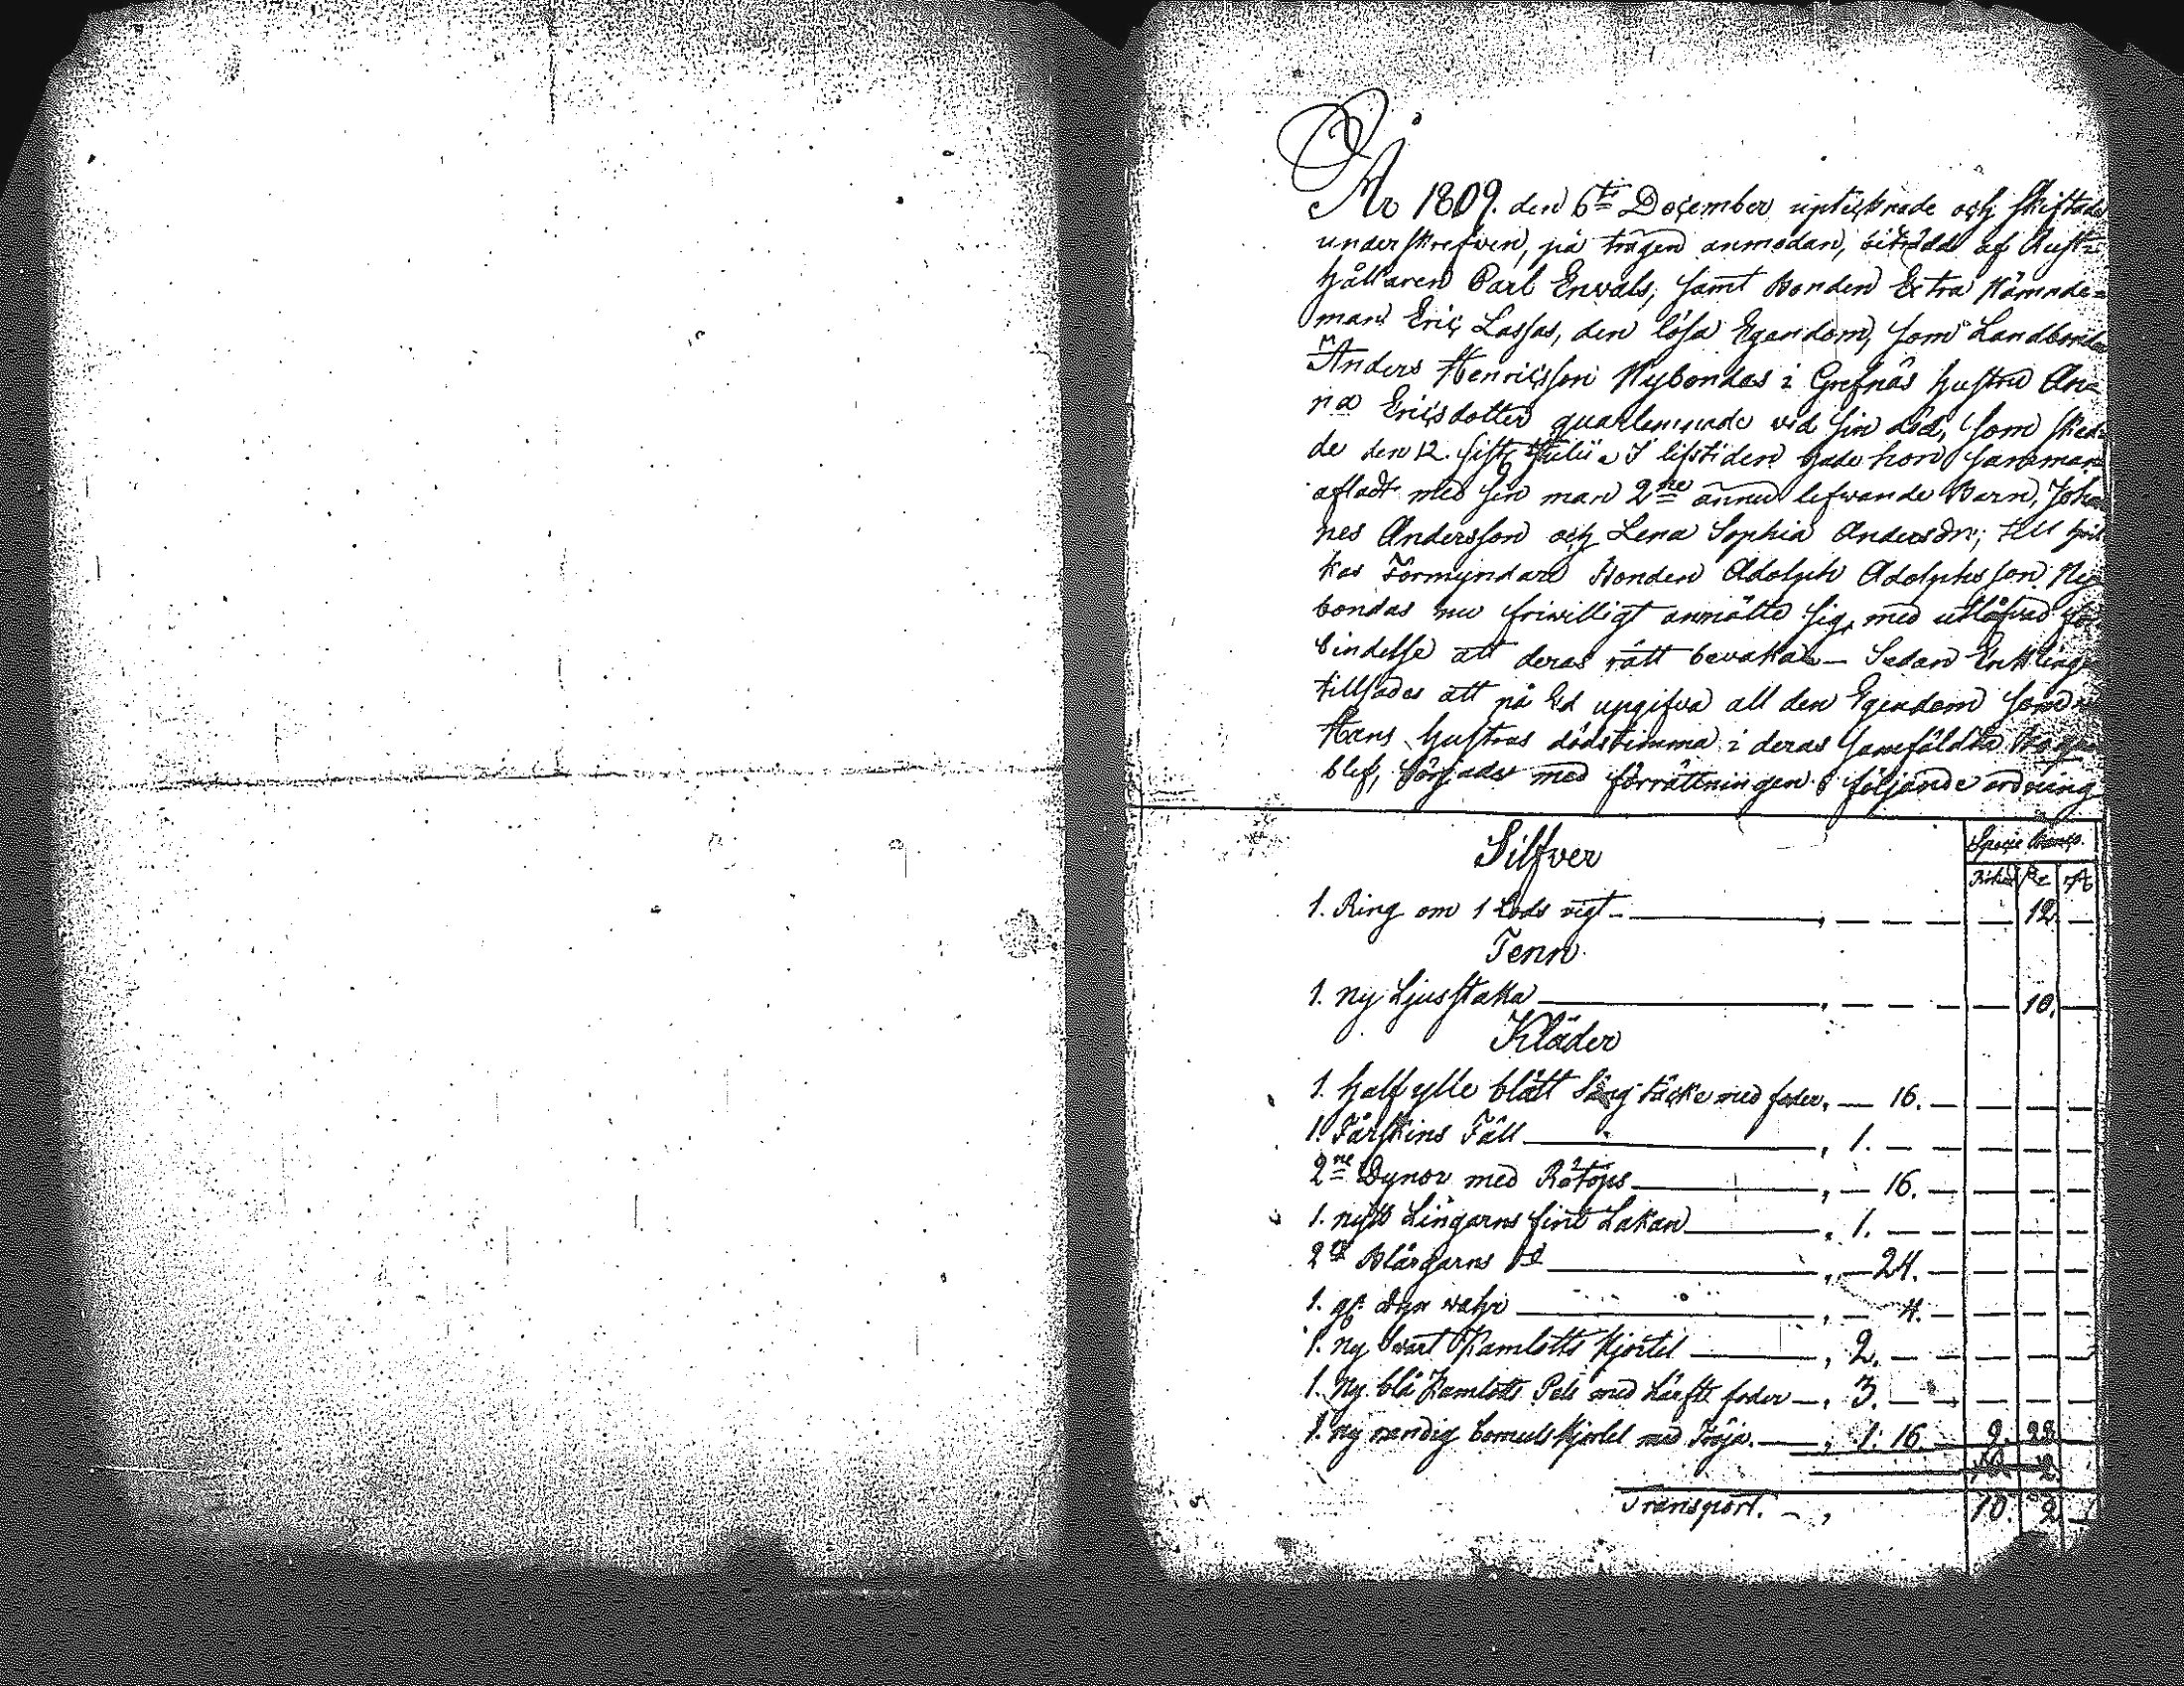 År 1809. den 6te December uptecknade och skiftade
underskrefven, på trägen anmodan, biträdd af Rust-
hållaren Carl Envals, samt Bonden Extra Nämnde=
man Eric Lassas, den lösa Egendom, som Landbonden
Anders Henricsson Nybondas i Grefnäs hustru An=
na Ericsdotter quarlemnade vid sin död, som sked=
de den 12. sistl. Julii. I lifstiden hade hon samman
afladt med sin man 2ne ännu lefwande Barn, Johan
nes Andersson och Lena Sophia Andersdr; till hvil
kas Förmyndare Bonden Adolph Adolphsson Ny
bondas nu friwilligt anmälte sig, med utlåfvad för
bindelse att deras rätt bevaka. — Sedan Enklingen
tillsades att på Ed upgifva all den Egendom som
Hans hustrus dödstimma i deras samfäldta
blef, börjades med förrättningen i följande ordning
Silfver
Specie Banco.
Riksd. sk. rst.
1. Ring om 1 Lods vigt — 12.
Tenn
1. ny Ljusstaka — 10.
Kläder
1. half ylle blått Säng täcke med foder, — 16. —
1. Fårskins Fäll — 1. —
2ne Dynor med — 16. —
1. nytt Lingarns fint Lakan — 1. —
2ne Blårgarns d — 24. —
1. gl. dyn wahr — 4. —
1. ny svart Kamlotts Kjortel — 2. —
1. Ny blå Kamlotts Pels med Lärfts foder — 3. —
1. ny randig bomuls Kjortel med Tröja. — 1. 16. — 9. 28.
Transport. — 10. 2